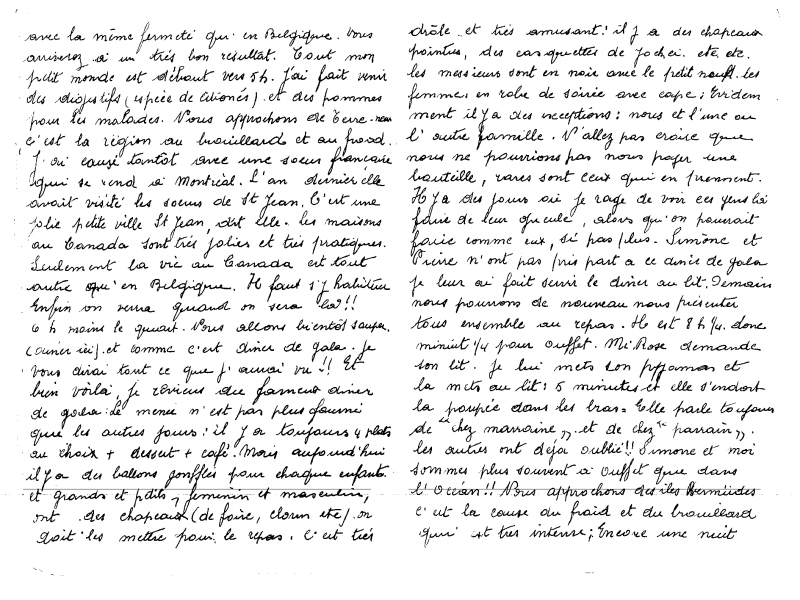 avec la même fermeté qu'en Belgique. Vous
arriverez à un très bon résultat. Tout mon
petit monde est debout vers 5h. J'ai fait venir
des digestifs (espèce de citronés) et des pommes
pour les malades. Nous approchons de Terre-neuve
c'est la région au brouillard et au froid.
J'ai causé tantôt avec une soeur française
qui se rend à Montréal. L'an dernier elle
avait visité les soeurs de St Jean. C'est une
jolie petite ville St Jean, dit elle. les maisons
au Canada sont très jolies et très pratiques.
Seulement la vie au Canada est tout
autre qu'en Belgique. Il faut s'y habituer
Enfin on verra quand on sera là!!
6 h moins le quart. Nous allons bientôt souper
(dîner ici) et comme c'est dîner de gala. je
vous dirai tout ce que j'aurai vu!! Et
bien voilà, je reviens du fameux dîner
de gala: Le menu n'est pas plus fourni
que les autres jours: il y a toujours 4 plats
au choix + dessert + café. Mais aujourd'hui
il y a des ballons gonflés pour chaque enfants.
et grands et petits, feminin et masculin,
ont des chapeaux (de foire, clown etc) on
doit les mettre pour le repas. C'est très
drôle et très amusant! il y a des chapeaux
pointus, des casquettes de Jockei. etc. etc.
les messieurs sont en noir avec le petit noeud. les
femmes en robe de soirée avec cape; Evidem
ment il y a des exceptions: nous et l'une ou
l'autre famille. N'allez pas croire que
nous ne pourrions pas nous payer une
bouteille, rares sont ceux qui en prennent.
Il y a des jours où je rage de voir ces gens là
faire de leur gueule, alors qu'on pourrait
faire comme eux, si pas plus. Simone et
Pierre n'ont pas pris part a ce dîner de gala
je leur ai fait servir le dîner au lit. Demain
nous pourrons de nouveau nous présenter
tous ensemble au repas. Il est 8 h 1/4. donc
minuit 1/4 pour Ouffet. Mi Rose demande
son lit. Je lui mets son pyjamas et
la mets au lit: 5 minutes et elle s'endort
la poupée dans les bras = Elle parle toujours
de "chez marraine" et de chez "parrain".
les autres ont déjà oublié!! Simone et moi
sommes plus souvent à Ouffet que dans
l'Océan!! Nous approchons des îles Bermudes
c'est la cause du froid et du brouillard
qui est très intense; Encore une nuit